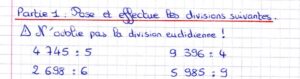 Partie 1. Pose et effectue les divisions suivantes.
⚠ N'oublie pas la division euclidienne !
4 745 : 5 9 396 : 4
2 698 : 6 5 985 : 9